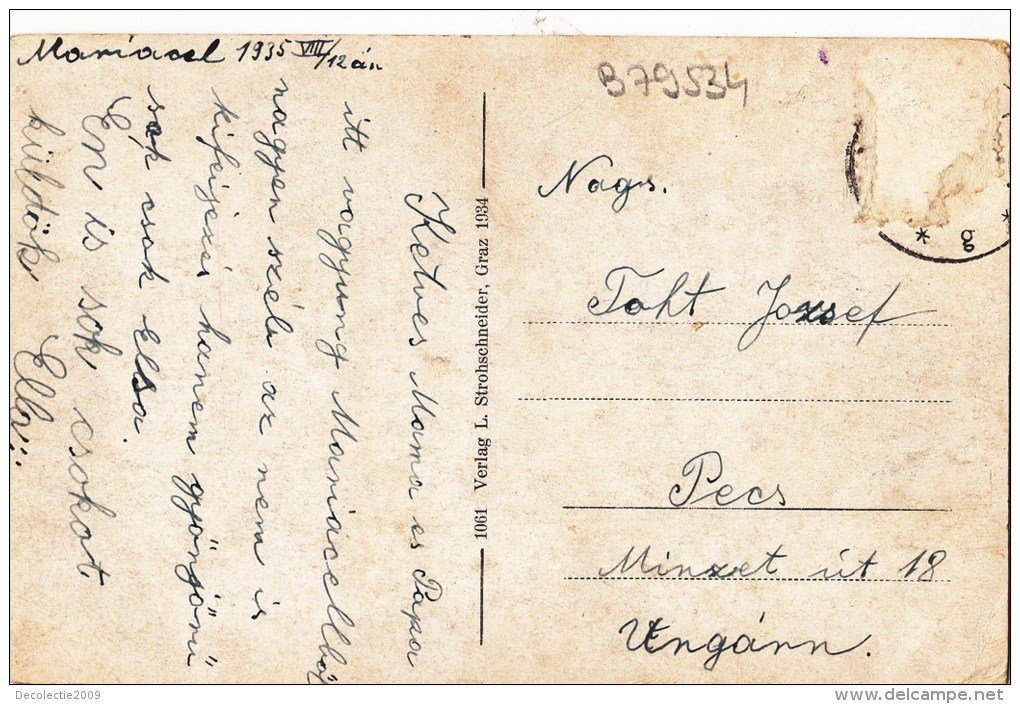 Mariacel 1935 VIII/12 án
Ketves Mama es Papa
itt vagyung Mariacellből
nagyen széla az nem is
kifeijezés hanem gyöngjörű
sok csok Elsa.
En is sok csokot.
küldök Ella!!!
1061 Verlag L. Strohschneider, Graz 1934
B79534
* g *
Nags.
Toht Jozsef
Pecs
Minzet út 18
Ungárn.
Decolectie2009
www.delcampe.net